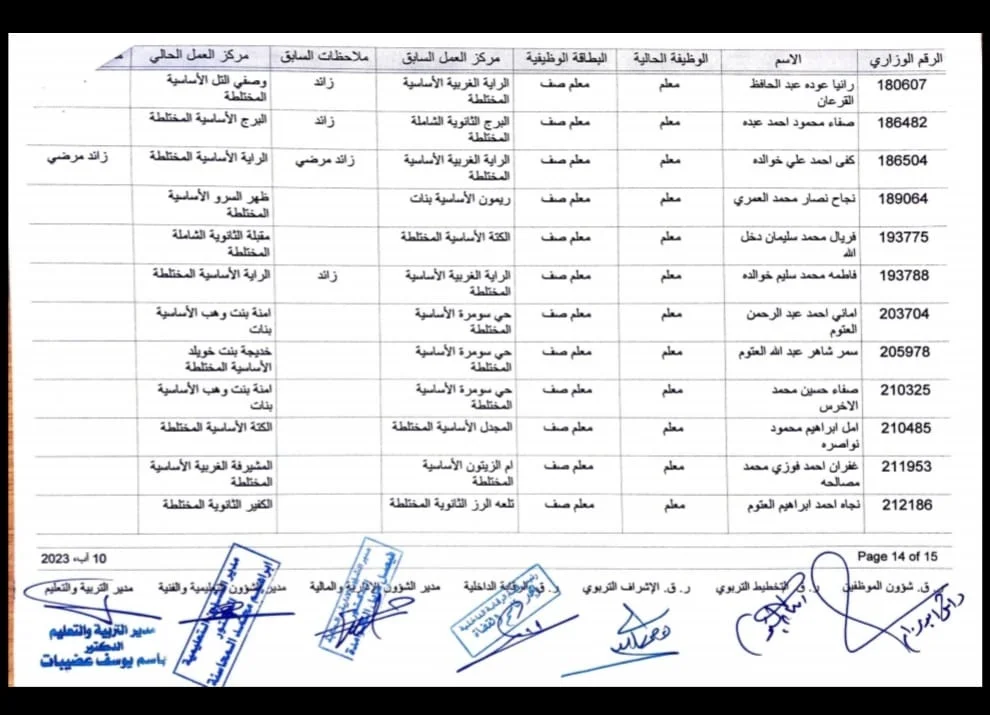 الرقم الوزاري الاسم الوظيفة الحالية البطاقة الوظيفية مركز العمل السابق ملاحظات السابق مركز العمل الحالي
180607 رانيا عوده عبد الحافظ القرعان معلم معلم صف الراية الغربية الأساسية المختلطة زائد وصفي التل الأساسية المختلطة
186482 صفاء محمود احمد عبده معلم معلم صف البرج الثانوية الشاملة المختلطة زائد البرج الأساسية المختلطة
186504 كفى احمد علي خوالده معلم معلم صف الراية الغربية الأساسية المختلطة زائد مرضي الراية الأساسية المختلطة زائد مرضي
189064 نجاح نصار محمد العمري معلم معلم صف ريمون الأساسية بنات ظهر السرو الأساسية المختلطة
193775 فريال محمد سليمان دخل الله معلم معلم صف الكتة الأساسية المختلطة مقبلة الثانوية الشاملة المختلطة
193788 فاطمه محمد سليم خوالده معلم معلم صف الراية الغربية الأساسية المختلطة زائد الراية الأساسية المختلطة
203704 اماني احمد عبد الرحمن العتوم معلم معلم صف حي سومرة الأساسية المختلطة امنة بنت وهب الأساسية بنات
205978 سمر شاهر عبد الله العتوم معلم معلم صف حي سومرة الأساسية المختلطة خديجة بنت خويلد الأساسية المختلطة
210325 صفاء حسين محمد الاخرس معلم معلم صف حي سومرة الأساسية المختلطة امنة بنت وهب الأساسية بنات
210485 امل ابراهيم محمود نواصره معلم معلم صف المجدل الأساسية المختلطة الكتة الأساسية المختلطة
211953 غفران احمد فوزي محمد مصالحه معلم معلم صف ام الزيتون الأساسية المختلطة المشيرفة الغربية الأساسية المختلطة
212186 نجاه احمد ابراهيم العتوم معلم معلم صف تلعه الرز الثانوية المختلطة الكفير الثانوية المختلطة
Page 14 of 15
10 آب، 2023
ق. شؤون الموظفين ر. ق. التخطيط التربوي ر. ق. الإشراف التربوي ر. ق. الرقابة الداخلية مدير الشؤون الإدارية والمالية مدير الشؤون التعليمية والفنية مدير التربية والتعليم
مدير التربية والتعليم
الدكتور
باسم يوسف عضيبات